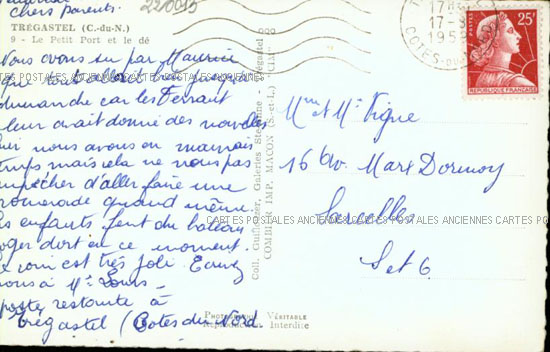 chers parents.
TRÉGASTEL (C.-du-N.)
9 - Le Petit Port et le dé
220015
Nous avons su par Maurice
que
dimanche car les Ferraut
leur avait donné des nouvelles
hier nous avons eu mauvais
temps mais cela ne nous pas
empêcher d'aller faire une
promenade quand même.
les enfants font du bateau
Roger dort en ce moment.
est très joli. Ecrivez
nous à Mr Louis
poste restante à
Trégastel (Cotes du Nord
Coll. Galeries Trégastel
COMBIER IMP. MACON (S.-et-L.) "CIM"
PHOTOGRAPHIE VÉRITABLE
Reproduction Interdite
17-
195
COTES-DU-
25F
REPUBLIQUE FRANÇAISE
Mme et Mr Vigne
16 Av. Marx Dormoy
Sarcelles
S et O.
CARTES POSTALES ANCIENNES CARTES POSTALES ANCIENNES
CARTES POSTALES ANCIENNES CARTES POSTALES ANCIENNES CARTES PO